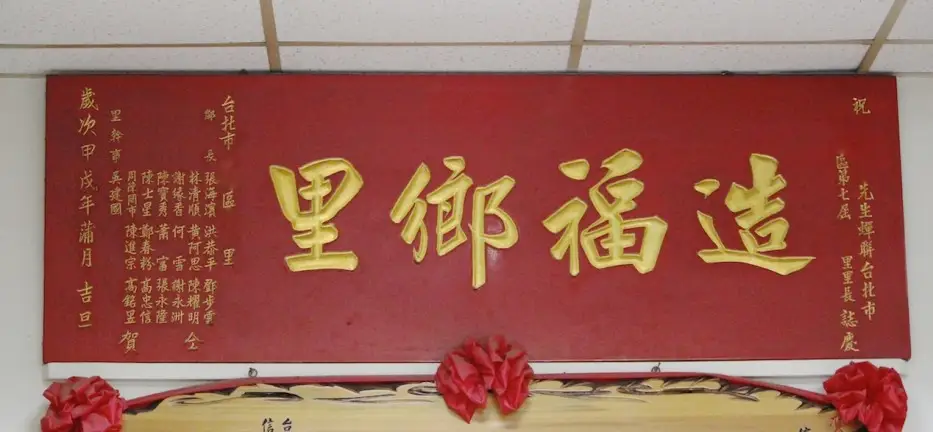 祝
先生蟬聯台北市
區第七屆 里里長誌慶
造福鄉里
台北市 區 里
鄰長
張海濱 洪恭平 鄧步雲
林清順 黃阿思 陳耀明 仝
謝綠香 何雪 謝永洲
陸寶秀 蕭富 張永隆
陳士星 鄭春粉 高忠信
周陳阿市 陳進宗 高銘昱 賀
里幹事 吳建國
歲次甲戌年蒲月吉旦